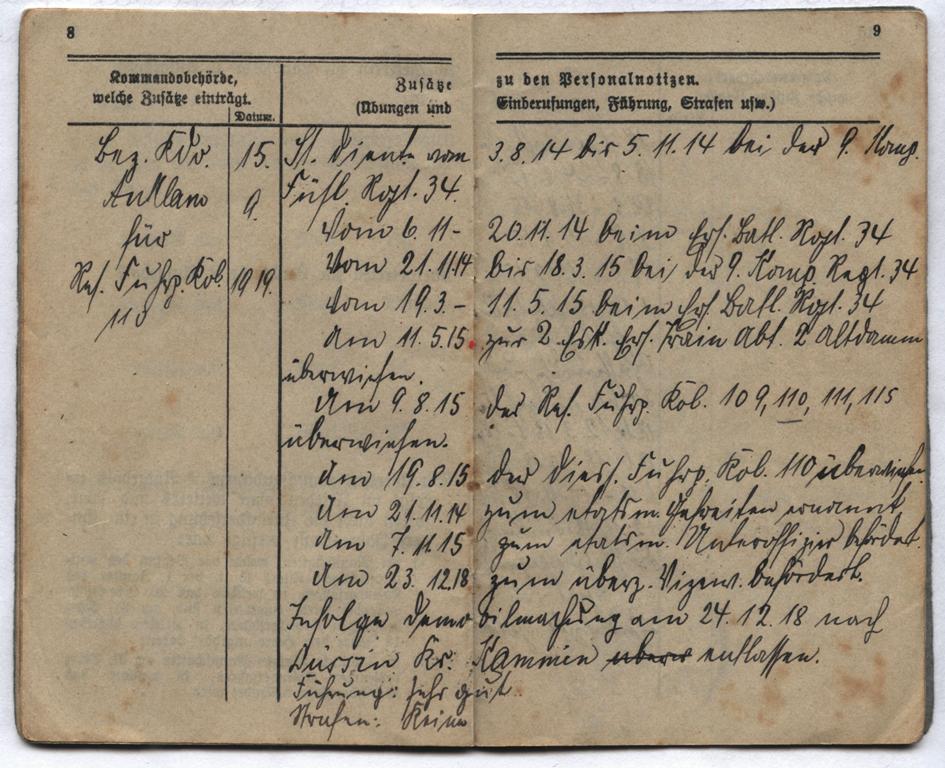 8
9
Kommandobehörde,
welche Zusätze einträgt.
Datum.
Zusätze
(Übungen und
zu den Personalnotizen.
Einberufungen, Führung, Strafen usw.)
Bez. Kdo.
Anklam
für
Res. Fuhrp. Kol.
110
15.
9.
1919.
St. diente vom 3.8.14 bis 5.11.14 bei der 9. Komp.
Füsl. Rgt. 34.
Vom 6.11- 20.11.14 beim Ers. Batl. Rgt. 34
Vom 21.11.14 bis 18.3.15 bei der 9. Komp Regt. 34
Vom 19.3.- 11.5.15 beim Ers. Batl. Rgt. 34
Am 11.5.15 zur 2 Esk. Ers. Train Abt. 2 Altdamm
überwiesen.
Am 9.8.15 der Res. Fuhrp. Kol. 109, 110, 111, 115
überwiesen.
Am 19.8.15 der diess. Fuhrp. Kol. 110 überwiesen
Am 21.11.14 zum etatsm. Gefreiten ernannt
Am 7.11.15 zum etatsm. Unteroffizier befördert.
Am 23.12.18 zum überz. Vizew. befördert.
Infolge Demobilmachung am 24.12.18 nach
Düssin Kr. Kammin entlassen.
Führung: Sehr gut
Strafen: Keine